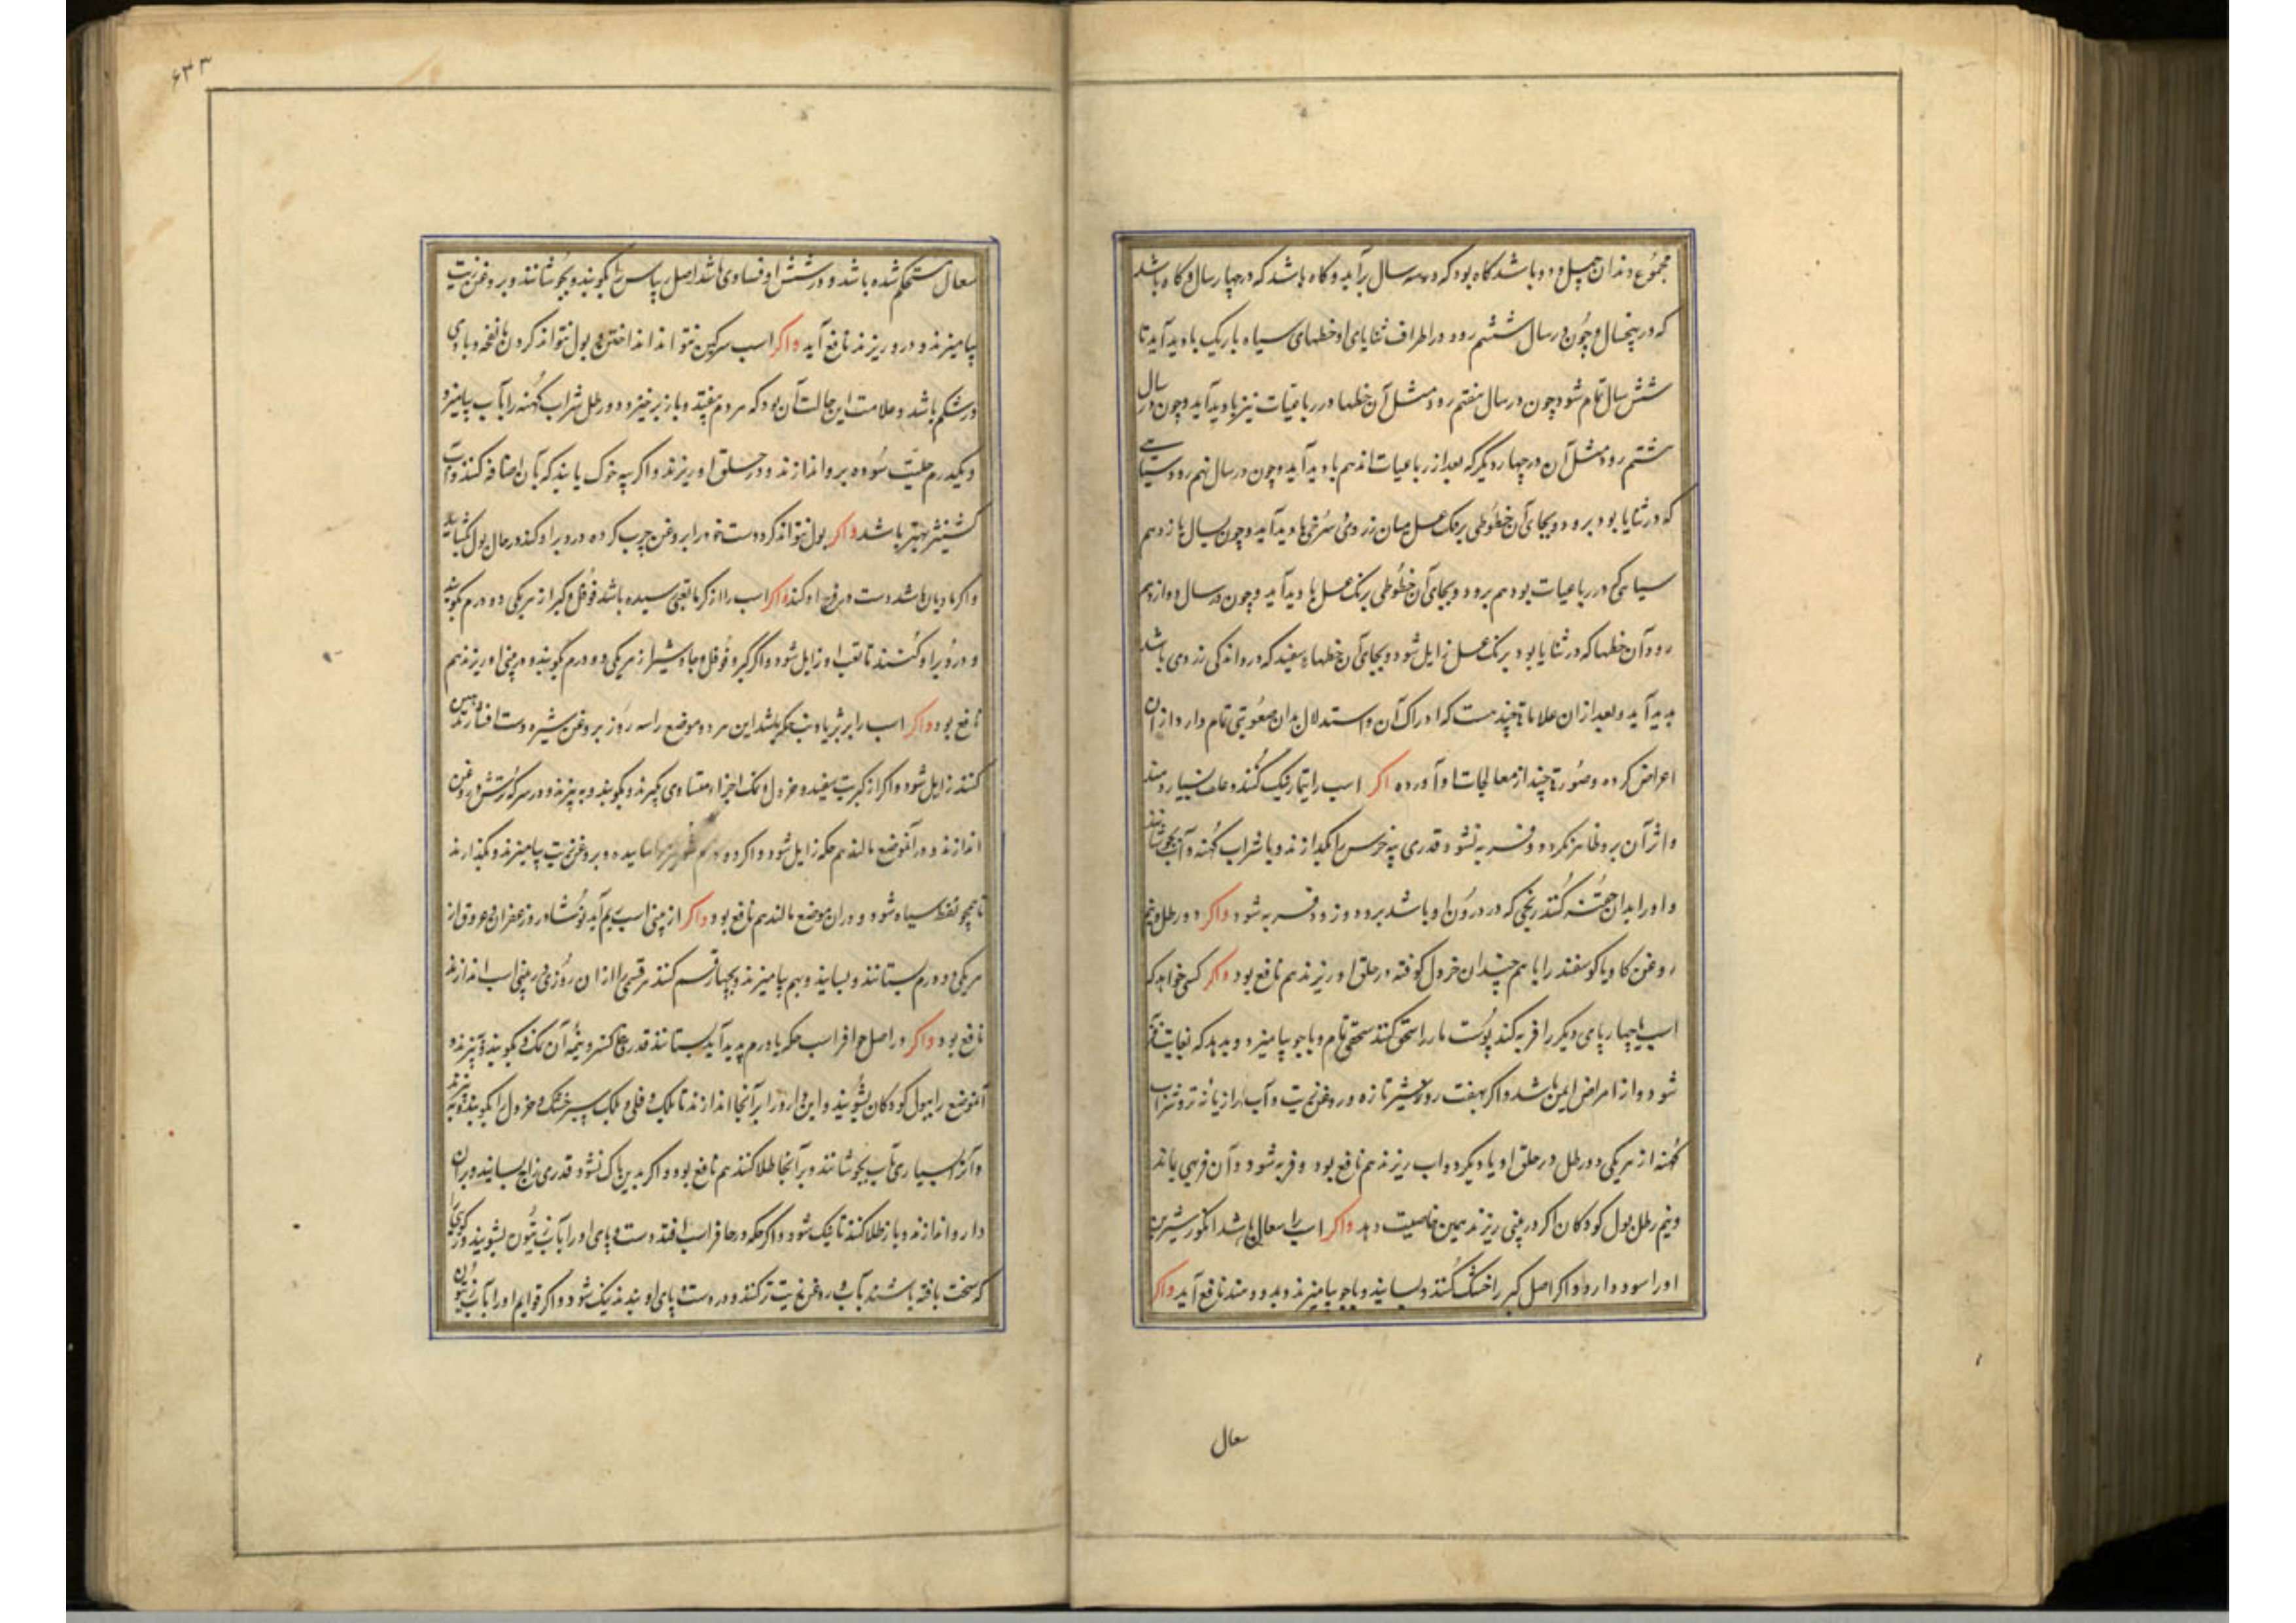 مجموع دندان چهل و دو باشد کاه بود که در سه سال برآید و کاه باشد که در چهار سال و کاه باشد
که در پنج سال و چون در سال ششم رود در اطراف ثنایای او خطهای سیاه باریک بادید آید تا
شش سال تمام شود چون در سال هفتم رود مثل آن خطها در رباعیات نیز بادید آید و چون در سال
هشتم رود مثل آن در چهار دیگر که بعد از رباعیات اند هم بادید آید و چون در سال نهم رود سیاهی
که در ثنایا بود برود و بجای آن خطوطی برنک عسل میان زردی و سرخی بادید آید و چون بسال یازدهم
سیاهی که در رباعیات بود هم برود و بجای آن خطوطی برنک عسل بادید آید و چون در سال دوازدهم
رود آن خطها که در ثنایا بود برنک عسل زایل شود و بجای آن خطهاء سفید که در و اندکی زردی باشد
پدید آید و بعد از ان علاماتی چند هست که ادراک آن و استدلال بدان صعوبتی تمام دارد از ان
اعراض کرده و صورتی چند از معالجات او آورده اکر اسب را تیمار نیک کنند و علف بسیار دهند
و اثر آن برو ظاهر نکردد و فربه نشود قدری پیه خرس را بکدازند و با شراب کهنه و آب بجوشانند
و او را بدان حقنه کنند رنجی که در درون او باشد برود و زود فربه شود واکر دو رطل و نیم
روغن کاو یا کوسفند را با هم چندان خردل کوفته در حلق او ریزند هم نافع بود واکر کسی خواهد که
اسب یا چهارپای دیکر را فربه کند پوست مار را سحق کند سحقی تام و با جو بیامیزد و بدهد که بغایت فربه
شود و از امراض ایمن باشد و اکر هفت روز شیر تازه و روغن زیت و آب رازیانه تر و شراب
کهنه از هر یکی دو رطل در حلق او یا دیکر دواب ریزند هم نافع بود و فربه شود و آن فربهی بماند
و نیم رطل بول کودکان اکر در بینی ریزند همین خاصیت دهد واکر اسب را سعال باشد انکور شیرین
او را سود دارد و اکر اصل کبر را خشک کنند و بسایند و با جو بیامیزند و بدو دهند نافع آید واکر
سعال
۶۳۳
سعال مستحکم شده باشد و در شش او فسادی باشد اصل پیاس را بکوبند و بجوشانند و بروغن زیت
بیامیزند و درو ریزند نافع آید واکر اسب سرکین نتواند انداختن و بول نتواند کردن یا نفخه و بادی
در شکم باشد و علامت این حالت آن بود که هر دم بیفتد و باز برخیزد دو رطل شراب کهنه را با آب بیامیزد
و یکدرم حلتیت سوده برو اندازند و در حلق او ریزند و اکر پیه خوک یابند که بآن اضافه کنند و آب
کشنیز بهتر باشد واکر بول نتواند کرد دست خود را بروغن چرب کرده در دبر او کند در حال بول بکشاید
و اکر مادیان باشد دست در فرج او کند واکر اسب را از کرما تعبی رسیده باشد فوفل و کبر از هر یکی دو درم بکوبند
و در دبر او کنند تا تعب او زایل شود و اکر کبر و فوفل و جاوشیر از هر یکی دو درم بکوبند و در بینی او ریزند هم
نافع بود واکر اسب را بر بثر یا دنب حکه باشد این هر دو موضع را سه روز بروغن شیره دست افشار تدهین
کنند زایل شود و اکر از کبریت سفید و خردل و نمک اجزاء متساوی بکیرند و بکوبند و بپزند و در سرکه ترش و روغن
اندازند و در آنموضع مالند هم حکه زایل شود و اکر دو درم سابیده و بروغن زیت بیامیزند و بکذارند
تا همچو نفط سیاه شود و در ان موضع مالند هم نافع بود واکر از بینی اسب ریم آید نوشادر و زعفران و عروق از
هر یکی دو درم بستانند و بسایند و بهم بیامیزند و بچهار قسم کنند هر قسمی را از ان روزی در بینی اسب اندازند
نافع بود واکر در اصل حوافر اسب حکه یا ورم پدید آید بستانند قدری خاکستر و نیمه آن نمک و بکوبند و بپزند و
آنموضع را ببول کودکان بشویند و این دارو را بر آنجا اندازند تا نیک و قلی و نمک و سیر خشک و خردل را بکوبند و بپزند
و آنرا بسیاری آب بجوشانند و بر آنجا طلا کنند هم نافع بود و اکر بدین پاک نشود قدری زاج بسایند و بر ان
دارو اندازند و باز طلا کنند تا نیک شود و اکر حکه در حافر اسب افتد دست و پای او را بآب زیتون بشویند و
که سخت بافته باشند بآب و روغن زیت تر کنند و در دست و پای او بندند نیک شود و اکر قوایم او را بآب زیتون